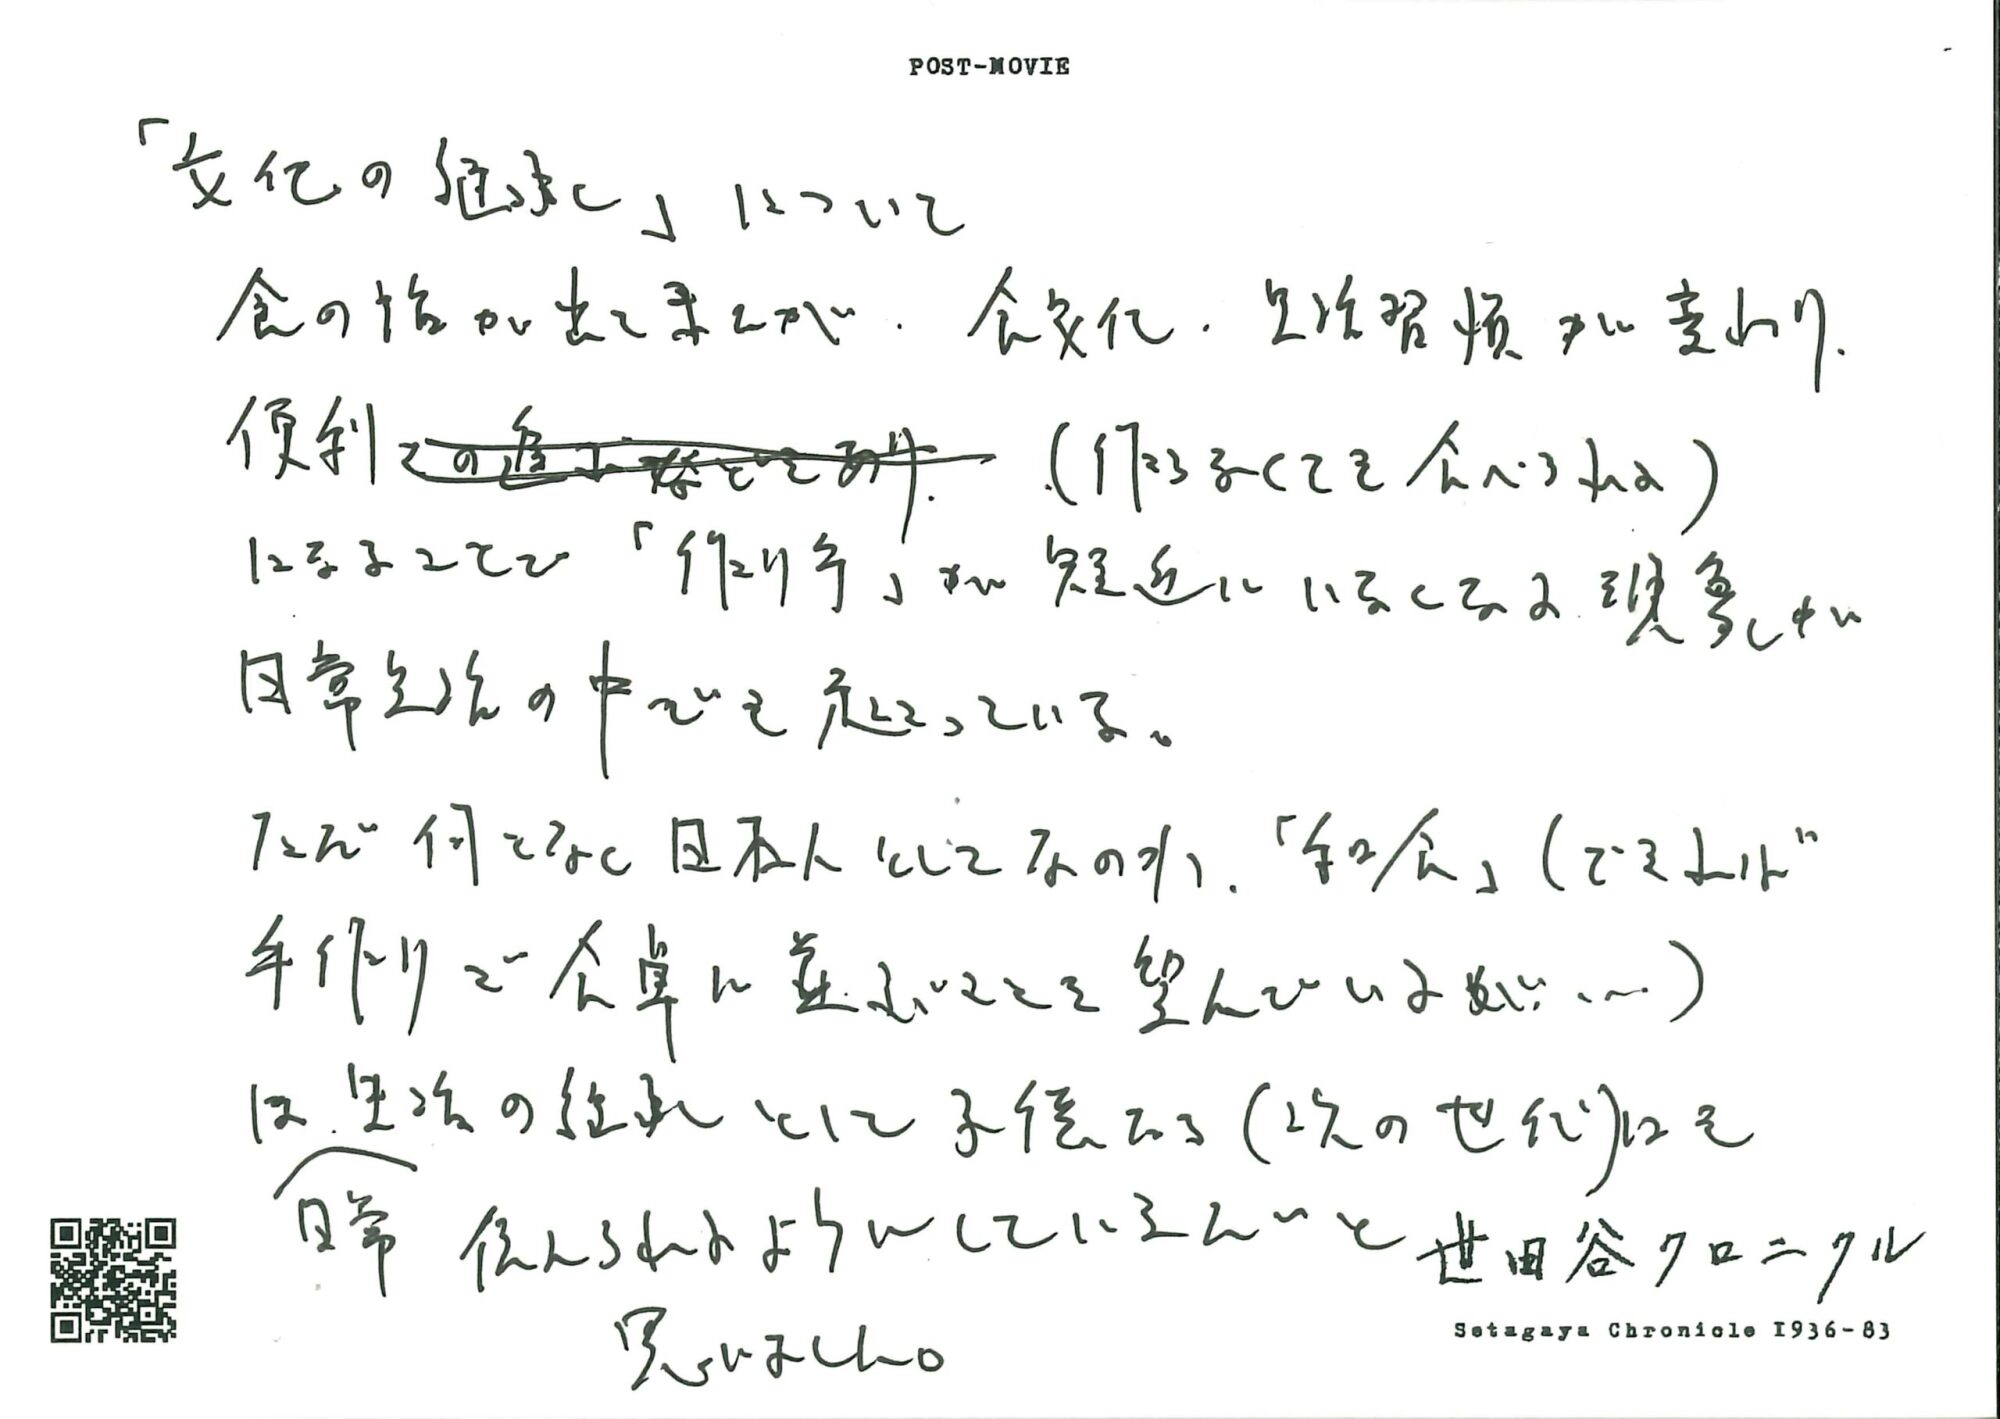 POST-MOVIE
「文化の継承」について
食の話が出てましたが、食文化、生活習慣が変わり、
便利 (作らなくても食べられる)
になることで「作り手」が身近にいなくなる現象が
日常生活の中でも起こっている。
ただ何となく日本人としてなのか、「和食」(できれば
手作りで食卓に並ぶことを望んでいるが…)
は、生活の継承として子供たち(次の世代)にも
日常 伝えられるようにしていきたいと
思いました。
世田谷クロニクル
Setagaya Chronicle 1936-83